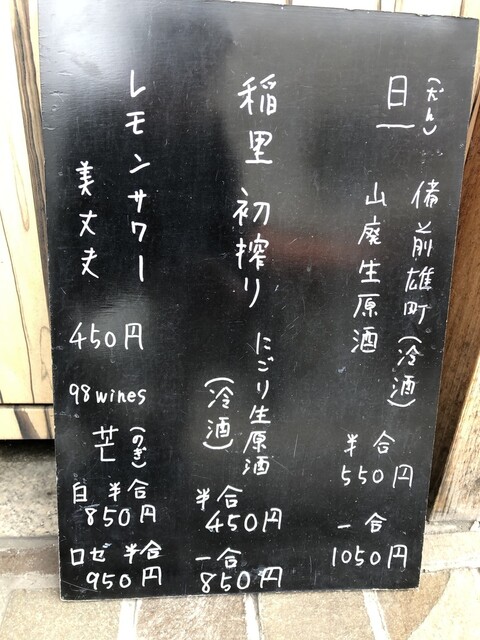 旦(だん)
備前雄町(冷酒)
山廃生原酒
半合
550円
一合
1050円
稲里 初搾り
にごり生原酒
(冷酒)
半合
450円
一合
850円
レモンサワー
美丈夫
450円
98wines
芒(のぎ)
白 半合
850円
ロゼ 半合
950円